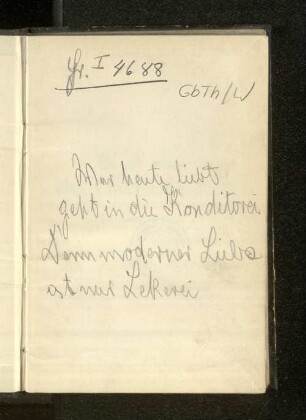 Gr. I 4688
GbTh/L)
Wer heute liebt
geht in die Konditorei
Denn moderner Liebe
ist nur Lekerei